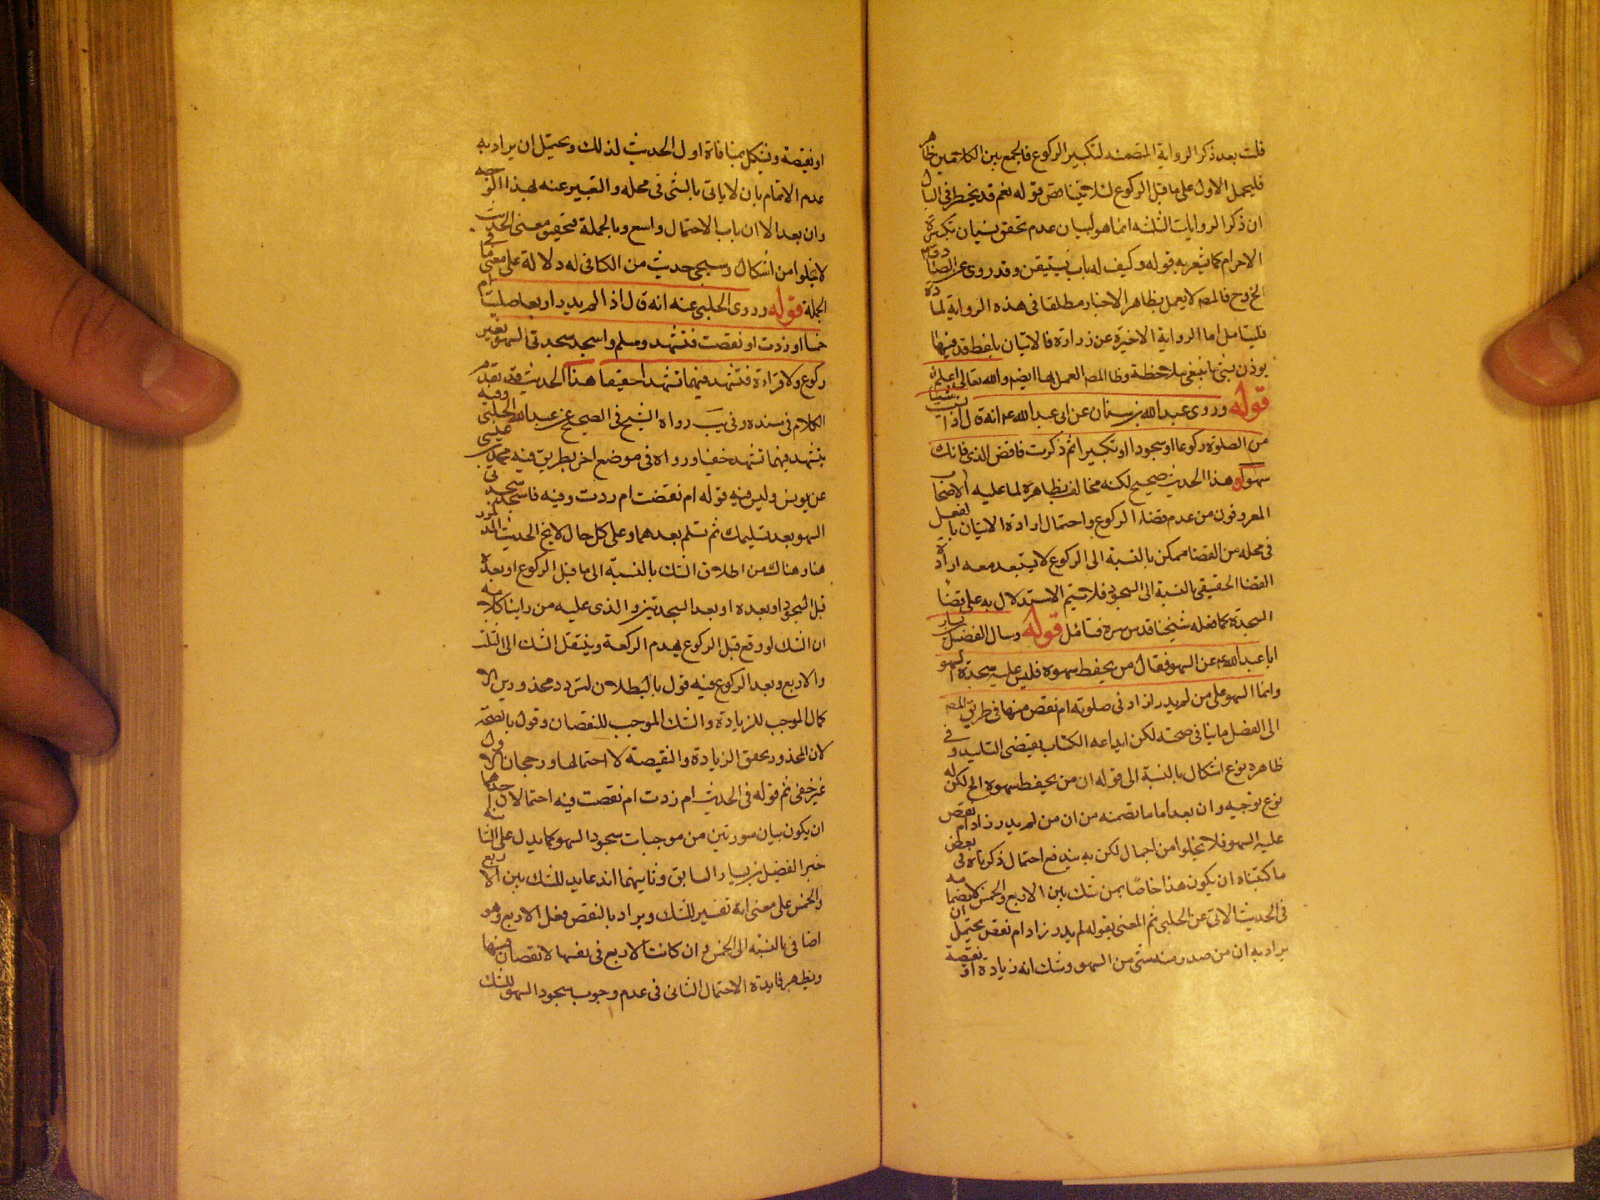 قلت بعد ذكر الرواية المتضمنة لتكبير الركوع فالجمع بين الكلامين ظاهر
فليحمل الاول على ما قبل الركوع لئلا يتناقض قوله نعم قد يخطر في البال
ان ذكر الروايات الثلثة انما هو لبيان عدم تحقق نسيان تكبيرة
الاحرام كما يشعر به قوله وكيف له بان يستيقن وقد روى عن الصادق
الخ وح فالمص لا يعمل بظاهر الاخبار مطلقا في هذه الرواية
فليتامل اما الرواية الاخيرة عن زرارة فالاتيان بلفظ قد فيها
يوذن بشي ينبغي ملاحظة وظا المص العمل بها ايضم والله تعالى اعلم
قوله وروى عبد الله بن سنان عن ابي عبد الله ع انه قال اذا نسيت شيئا
من الصلوة ركوعا او سجودا او تكبيرا ثم ذكرت فاقض الذي فاتك
سهوا وهذا الحديث صحيح لكنه مخالف بظاهره لما عليه الاصحاب
المعروفون من عدم قضاء الركوع واحتمال ارادة الاتيان بالفعل
في محله من القضا ممكن بالنسبة الى الركوع لا يستبعد معه ارادة
القضا الحقيقي بالنسبة الى السجود فلا يتم الاستدلال به على قضاء
السجدة كما فعله شيخنا قدس سره فتامل قوله وسال الفضيل بن يسار
ابا عبد الله ع عن السهو فقال من يحفظ سهوه فليس عليه سجدتا السهو
وانما السهو على من لم يدر ازاد في صلوته ام نقص منها في طريق المص
الى الفضل ما ينافي صحته لكن ايداعه الكتاب يقتضي التاييد وفي
ظاهره نوع اشكال بالنسبة الى قوله ان من يحفظ سهوه الخ لكن له
نوع توجيه وان بعد اما ما تضمنه من ان من لم يدر زاد ام نقص
عليه السهو فلا يخلوا من اجمال لكن به يندفع احتمال ذكرناه في بعض
ما كتبناه ان يكون هذا خاصا بمن شك بين الاربع والخمس
في الحديث الاتي عن الحلبي ثم المعنى بقوله لم يدر زاد ام نقص يحتمل ان
يراد به ان من صدر منه شي من السهو وشك انه زيادة او نقيصة
او نقيصة ويشكل بمنافاة اول الحديث لذلك ويحتمل ان يراد به
عدم الاتمام بان لا ياتي بالشي في محله والتعبير عنه بهذا الوجه
وان بعد الا ان باب الاحتمال واسع وبالجملة تحقيق معنى الحديث
لا يخلوا من اشكال وسيجي حديث من الكافي له دلالة على معنى ما في
الجملة قوله وروى الحلبي عنه انه قال اذا لم يدر اربعا صليت ام
خمسا او زدت او نقصت فتشهد وسلم واسجد سجدتي السهو بغير
ركوع ولا قراءة فتشهد فيهما تشهدا خفيفا هذا الحديث قد تقدم
الكلام في سنده وفي يب رواه الشيخ في الصحيح عن عبيد الله الحلبي وفيه
يتشهد فيهما تشهد خفيفا ورواه في موضع اخر بطريق فيه محمد بن عيسى
عن يونس وليس فيه قوله ام نقصت ام زدت وفيه فاسجد سجدتي
السهو بعد تسليمك ثم تسلم بعدهما وعلى كل حال لا يخ الحديث المذكور
هنا وهناك من اطلاق الشك بالنسبة الى ما قبل الركوع او بعده
قبل السجود او بعده او بعد السجدتين والذي عليه من راينا كلامه
ان الشك لو وقع قبل الركوع يهدم الركعة وينتقل الشك الى الثلث
والاربع وبعد الركوع فيه قول بالبطلان لتردد محذورين الا
كمال الموجب للزيادة والشك الموجب للنقصان وقول بالصحة
لان المحذور تحقق الزيادة والنقيصة لا احتمالها ورجحان الاول
غير خفي ثم قوله في الحديث ام زدت ام نقصت فيه احتمالان احدهما
ان يكون بيان صورتين من موجبات سجود السهو كما يدل على الثانية
خبر الفضيل بن يسار السابق وثانيهما انه عايد للشك بين الاربع
والخمس على معنى انه تفسير للشك ويراد بالنقص فعل الاربع وهو
اضافي بالنسبة الى الخمس وان كانت الاربع في نفسها لا نقصان فيها
ويظهر فايدة الاحتمال الثاني في عدم وجوب سجود السهو للشك